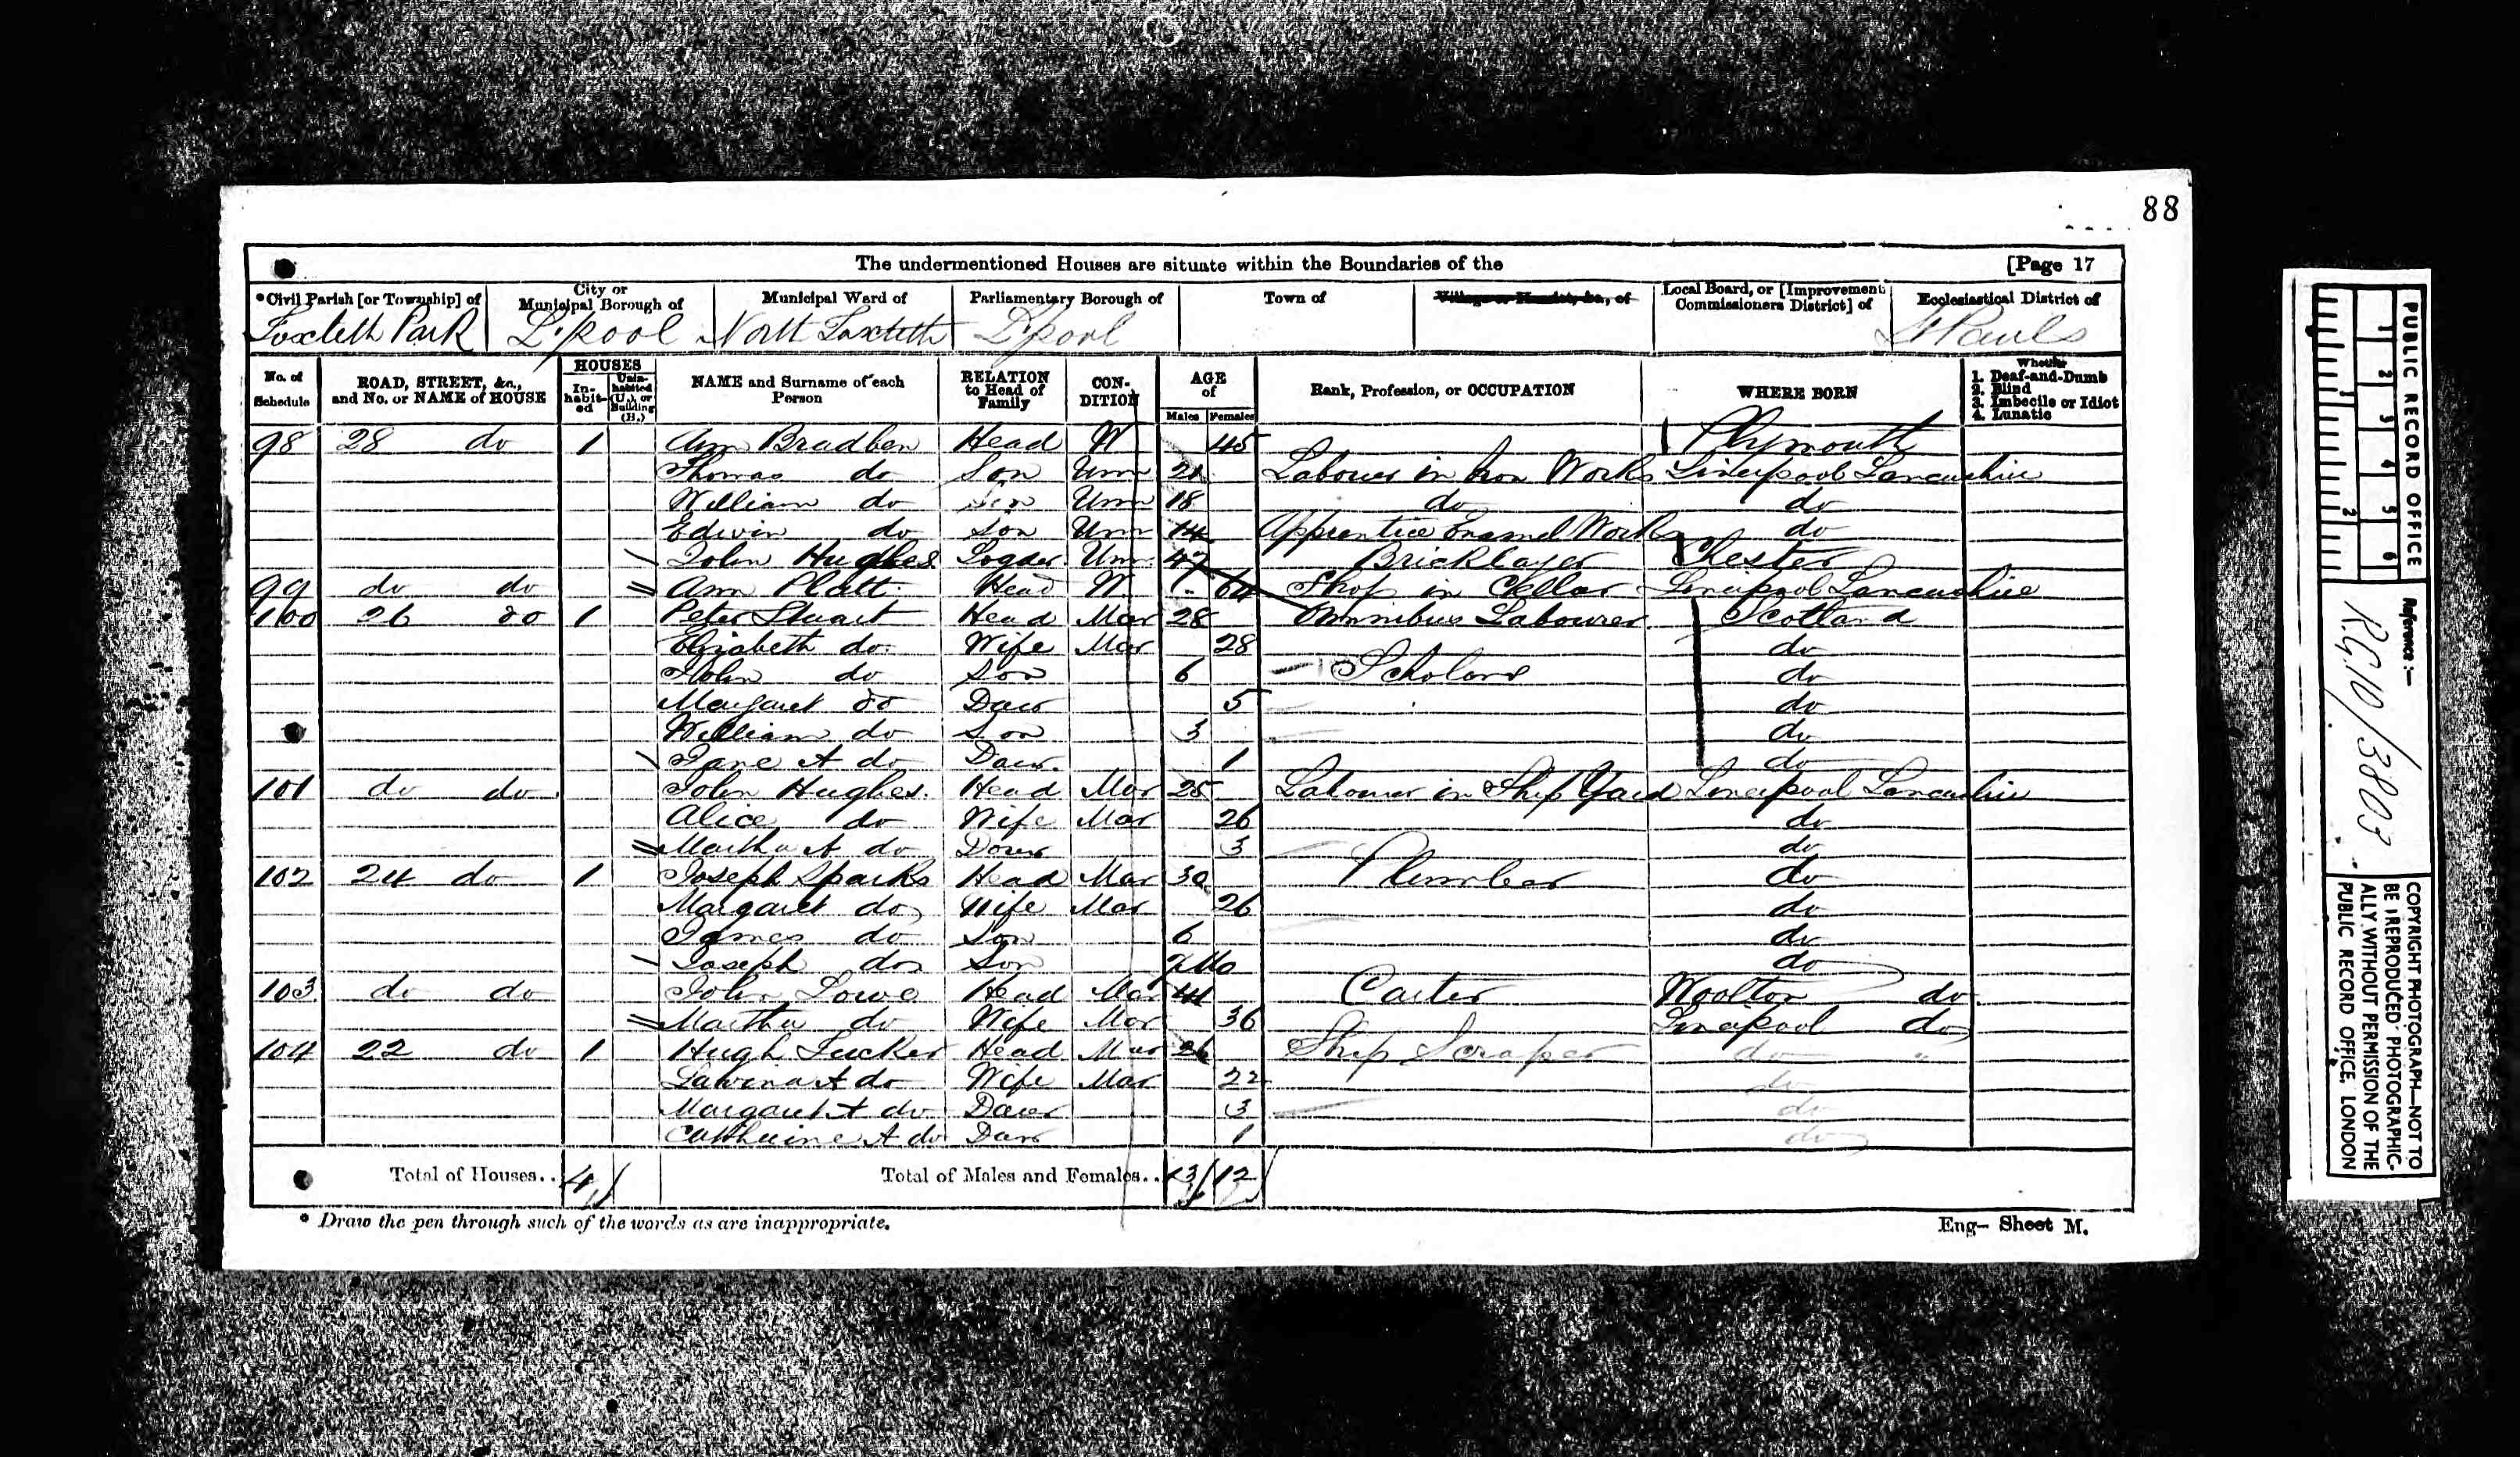 88
The undermentioned Houses are situate within the Boundaries of the [Page 17
*Civil Parish [or Township] of City or Municipal Borough of Municipal Ward of Parliamentary Borough of Town of Village or Hamlet, &c., of Local Board, or [Improvement Commissioners District] of Ecclesiastical District of
Toxteth Park L'pool North Toxteth L'pool St Pauls
No. of Schedule ROAD, STREET, &c., and No. or NAME of HOUSE HOUSES In-habit-ed Unin-habited (U.), or Building (B.) NAME and Surname of each Person RELATION to Head of Family CON-DITION AGE of Males Females Rank, Profession, or OCCUPATION WHERE BORN Whether 1. Deaf-and-Dumb 2. Blind 3. Imbecile or Idiot 4. Lunatic
98 28 do 1 Ann Bradben Head W 45 Plymouth
Thomas do Son Unm 21 Labourer in Iron Works Liverpool Lancashire
William do Son Unm 18 do do
Edwin do Son Unm 14 Apprentice Enamel Works do
John Hughes Lodger Unm 47 Bricklayer Chester
99 do do Ann Platt Head W. 64 Shop in Cellar Liverpool Lancashire
100 26 do 1 Peter Stuart Head Mar 28 Omnibus Labourer Scotland
Elizabeth do Wife Mar 28 do
John do Son 6 Scholar do
Margaret do Daur 5 do
William do Son 3 do
Jane A do Daur. 1 do
101 do do. John Hughes. Head Mar 25 Labourer in Ship Yard Liverpool Lancashire
Alice do Wife Mar 26 do
Martha A do Daur 3 do
102 24 do 1 Joseph Sparks Head Mar 30 Plumber do
Margaret do Wife Mar 26 do
James do Son 6 do
Joseph do Son Mo do
103 do do John Lowe Head Mar 41 Carter Woolton do
Martha do Wife Mar 36 Liverpool do
104 22 do 1 Hugh Tucker Head Mar 26 Ship Scraper do "
Lavina A do Wife Mar 22 do
Margaret A do Daur 3 do
Catherine A do Daur 1 do
Total of Houses.. 4 Total of Males and Females.. 13 12
* Draw the pen through such of the words as are inappropriate. Eng- Sheet M.
PUBLIC RECORD OFFICE
1 2 3 4 5 6
1 2
Reference:-
RG10/3803
COPYRIGHT PHOTOGRAPH—NOT TO BE REPRODUCED PHOTOGRAPHIC-ALLY WITHOUT PERMISSION OF THE PUBLIC RECORD OFFICE, LONDON